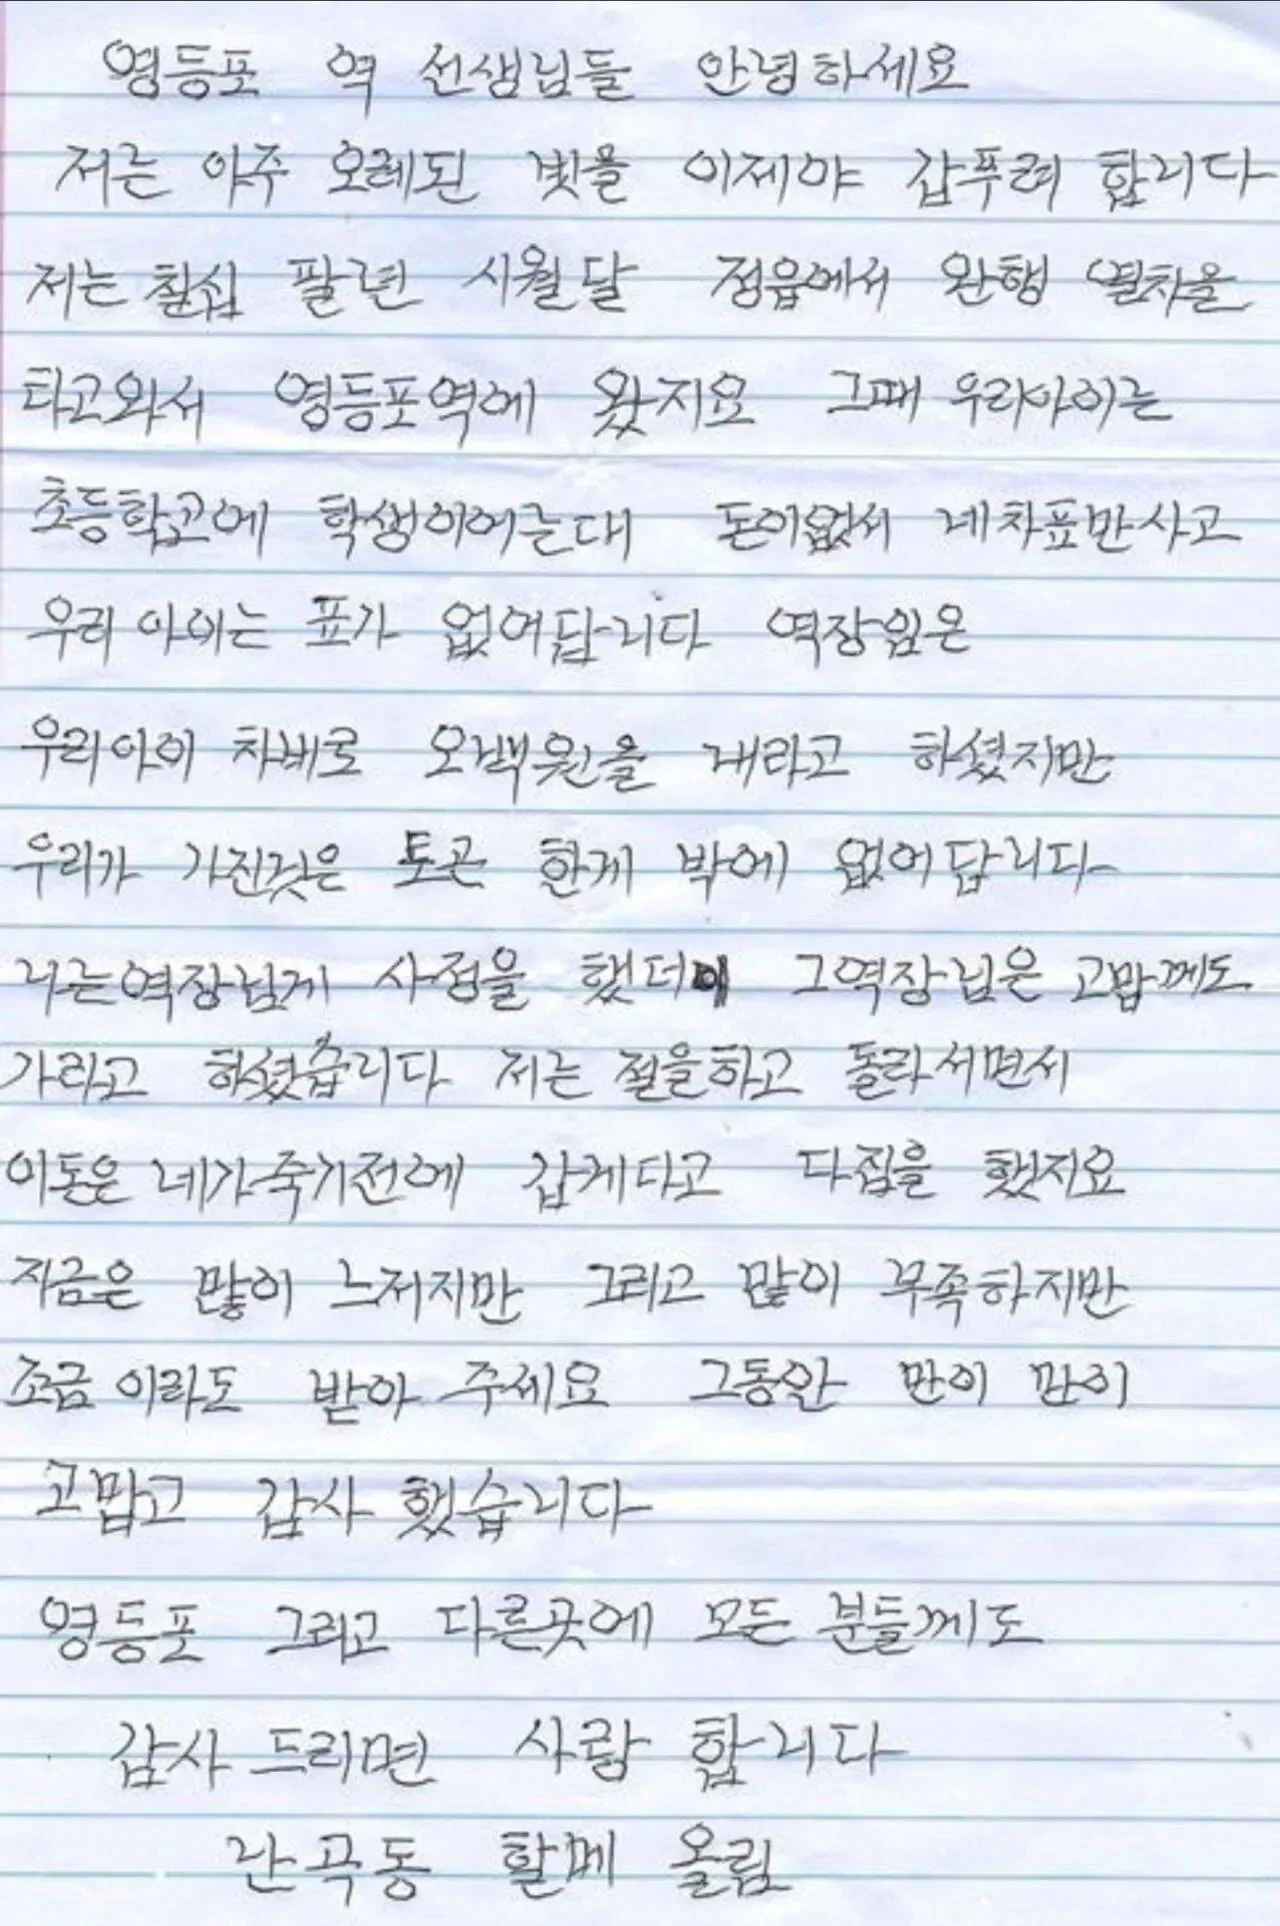 영등포 역 선생님들 안녕하세요
저는 아주 오레된 빚을 이제야 갑푸려 합니다
저는 칠십 팔년 시월달 정읍에서 완행 열차을
타고와서 영등포역에 왔지요 그때 우리아이는
초등학교에 학생이어는대 돈이없서 네차표만사고
우리 아이는 표가 없어답니다 역장임은
우리아이 차비로 오백원을 내라고 하셨지만
우리가 가진것은 토곤 한게 밖에 없어답니다
나는역장님게 사정을 했더이 그역장님은 고맙께도
가라고 하셨습니다 저는 절을하고 돌라서면서
이돈은 네가죽기전에 갑게다고 다짐을 했지요
지금은 많이 느저지만 그리고 많이 부족하지만
조금이라도 받아 주세요 그동안 만이 만이
고맙고 감사 했습니다
영등포 그리고 다른곳에 모든 분들께도
감사 드리면 사랑 합니다
난곡동 할메 올림